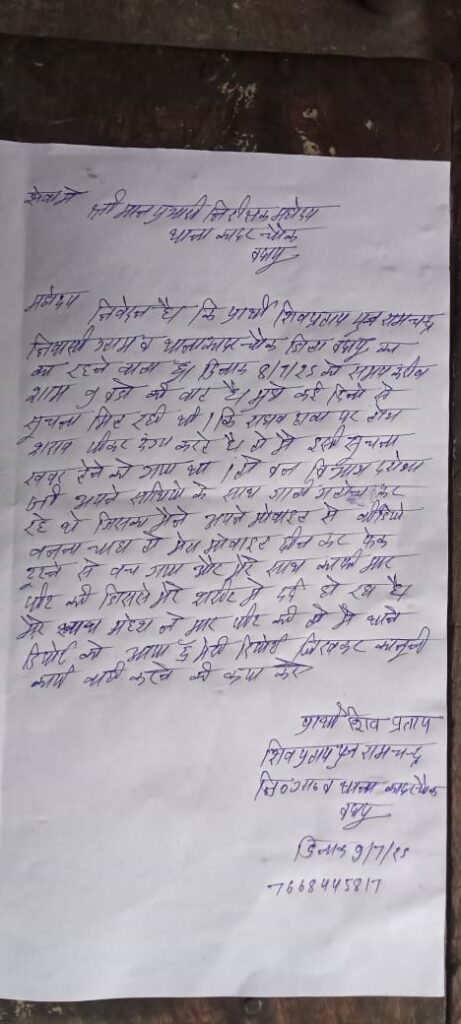 सेवा में
श्री मान प्रभारी निरीक्षक महोदय
थाना कादर चौक
बदायूं
महोदय
निवेदन है कि प्रार्थी शिवप्रताप पुत्र रामचन्द्र
निवासी ग्राम व थाना कादर चौक जिला बदायूं का
का रहने वाला हूँ। दिनांक 8/7/25 को समय करीब
शाम 9 बजे की बात है। मुझे कई दिनों से
सूचना मिल रही थी। कि शराब पर लोग
शराब पीकर दंगा करते है तो मै इसी सूचना
खबर लेने को गया था। तो वन दरोगा
जी अपने साथियो के साथ गाली गलौज कर
रहे थे जिसका मैने अपने मोबाइल से वीडियो
बनाना चाहा तो मेरा मोबाइल छीन कर फेक
टूटने से बच गया और मेरे साथ काफी मार
पीट की जिससे मेरे शरीर में दर्द हो रहा है।
मेरे साथ ने मार पीट की तो मै थाने
रिपोर्ट को आया हूँ मेरी रिपोर्ट लिखकर कानूनी
कार्य वाही करने की कृपा करें
प्रार्थी शिव प्रताप
शिवप्रताप पुत्र रामचन्द्र
नि० ग्राम व थाना कादरचौक
बदायूं
दिनांक 9/7/25
7668445817